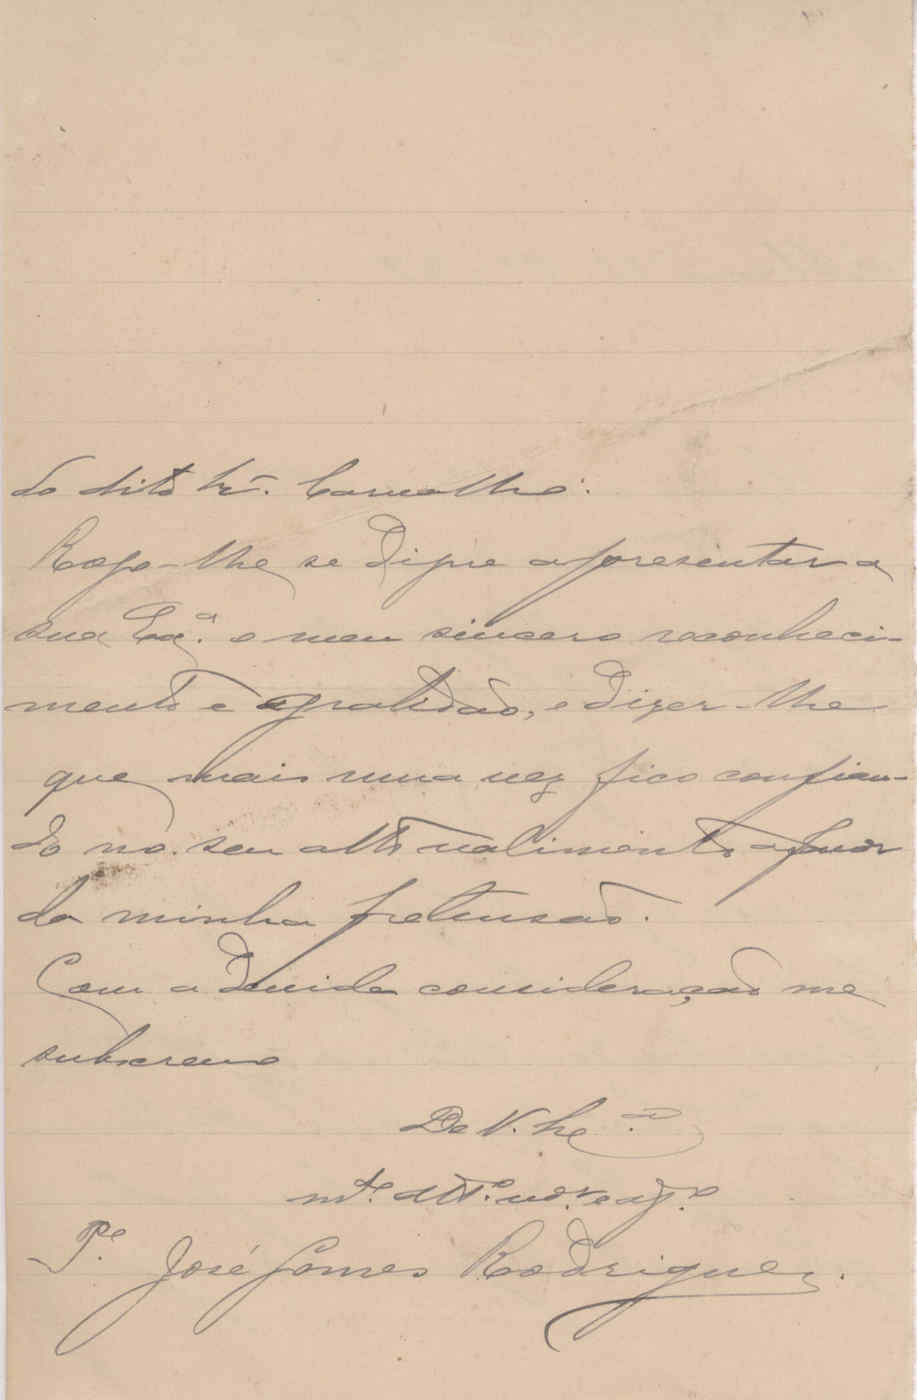 do dito Snr. Carvalho.
Rogo-lhe se digne apresentar a
sua Exª. o meu sincero reconheci-
mento e gratidão, e dizer-lhe
que mais uma vez fico confian-
do no seu alto valimento a favor
da minha pretensão.
Com a devida consideração me
subscrevo
De V. Sª.
mtº. attº. vor. e
Pe. José Gomes Rodrigues.